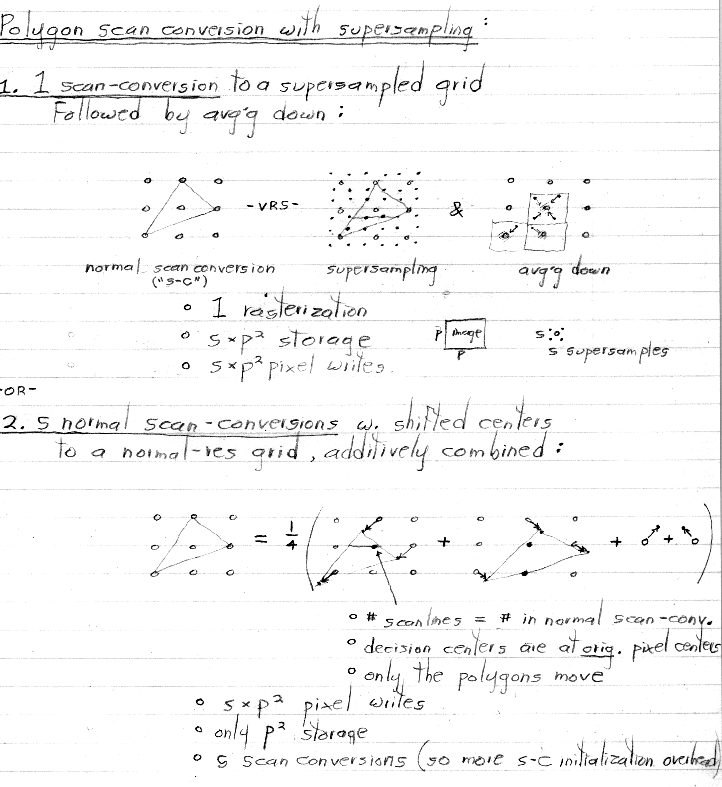 Polygon scan conversion with supersampling:
1. 1 scan-conversion to a supersampled grid
Followed by avg'g down:
-VRS-
&
normal scan conversion
("s-c")
supersampling
avg'g down
° 1 rasterization
° s×p² storage
° s×p² pixel writes.
P Image
P
s
s supersamples
-OR-
2. s normal scan-conversions w. shifted centers
to a normal-res grid, additively combined:
= 1/4 ( + + + )
° # scanlines = # in normal scan-conv.
° decision centers are at orig. pixel centers
° only the polygons move
° s×p² pixel writes
° only p² storage
° s scan conversions (so more s-c initialization overhead)